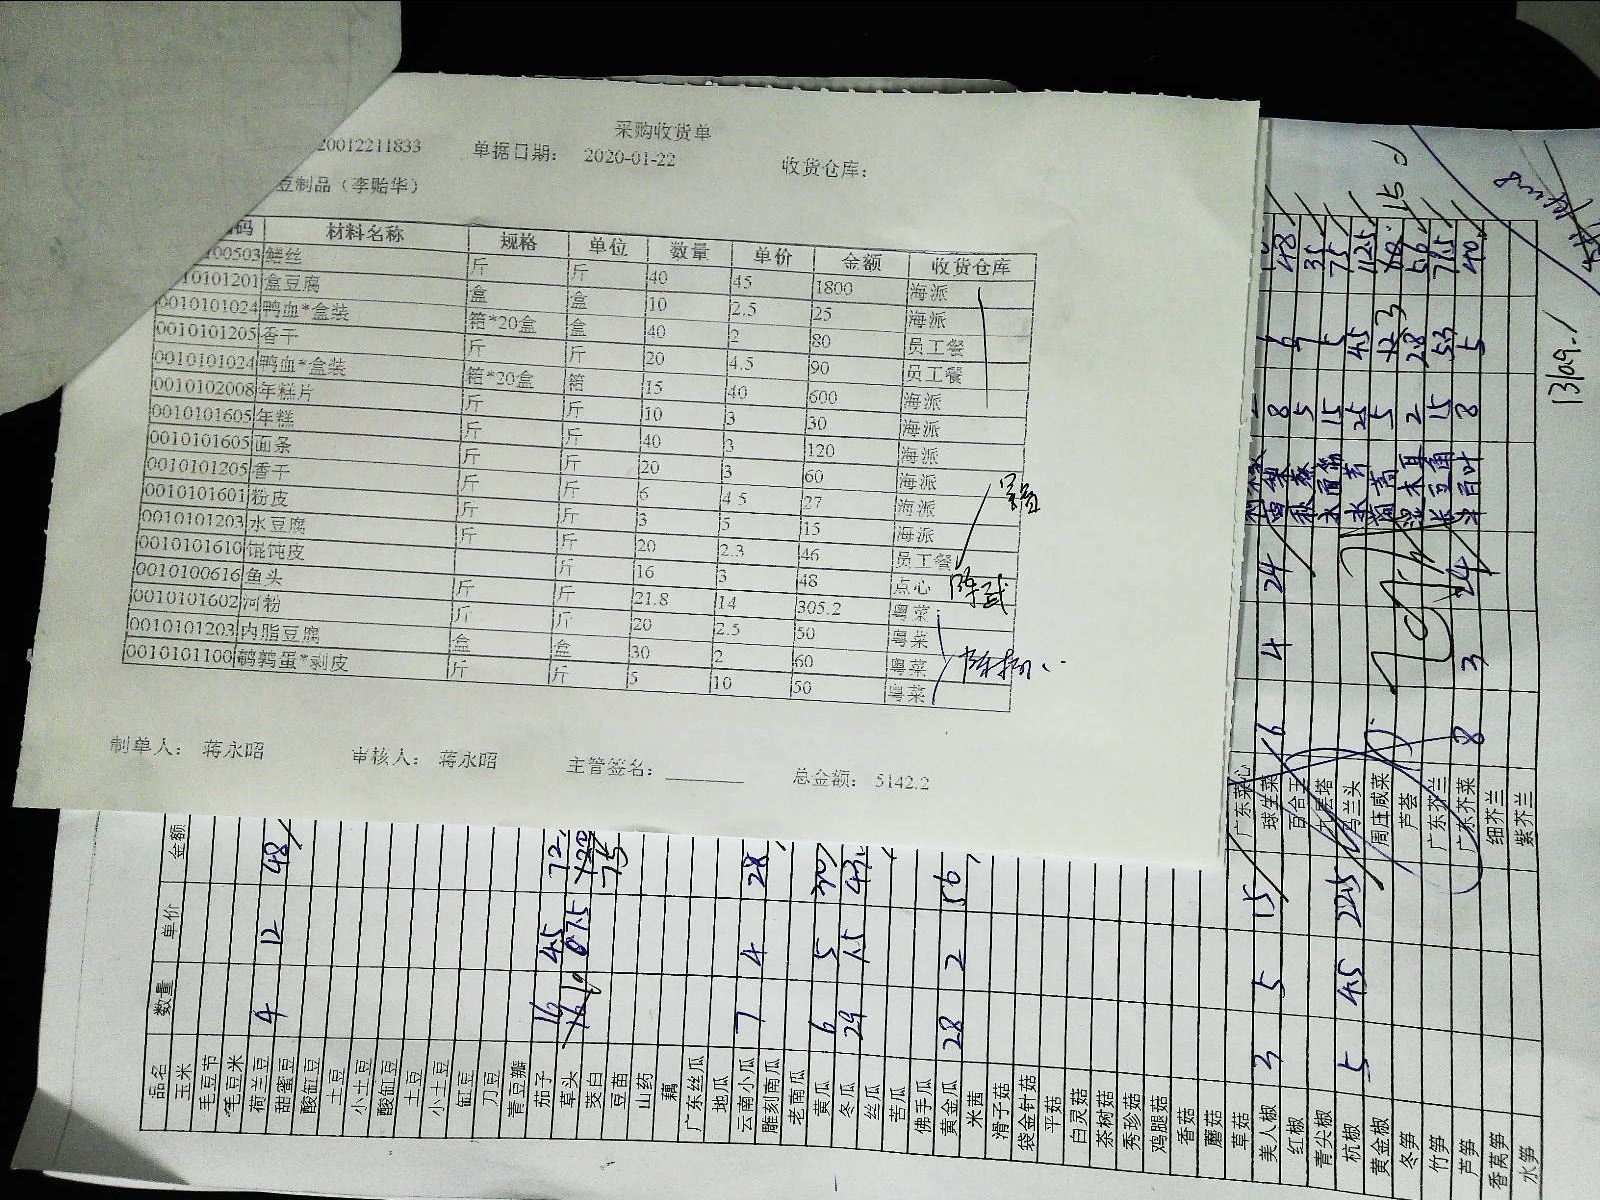 采购收货单
20012211833 单据日期： 2020-01-22 收货仓库：
豆制品（李贻华）
码 材料名称 规格 单位 数量 单价 金额 收货仓库
00503 鳝丝 斤 斤 40 45 1800 海派
10101201 盒豆腐 盒 盒 10 2.5 25 海派
0010101024 鸭血*盒装 箱*20盒 盒 40 2 80 员工餐
0010101205 香干 斤 斤 20 4.5 90 员工餐
0010101024 鸭血*盒装 箱*20盒 箱 15 40 600 海派
0010102008 年糕片 斤 斤 10 3 30 海派
0010101605 年糕 斤 斤 40 3 120 海派
0010101605 面条 斤 斤 20 3 60 海派
0010101205 香干 斤 斤 6 4.5 27 海派
0010101601 粉皮 斤 斤 3 5 15 海派
0010101203 水豆腐 斤 斤 20 2.3 46 员工餐
0010101610 馄饨皮 斤 16 3 48 点心
0010100616 鱼头 斤 斤 21.8 14 305.2 粤菜
0010101602 河粉 斤 斤 20 2.5 50 粤菜
0010101203 内脂豆腐 盒 盒 30 2 60 粤菜
0010101100 鹌鹑蛋*剥皮 斤 斤 5 10 50 粤菜
制单人： 蒋永昭 审核人： 蒋永昭 主管签名： 总金额： 5142.2
品名 数量 单价 金额
玉米
毛豆节
毛豆米
荷兰豆 4 12 48
甜蜜豆
酸缸豆
土豆
小土豆
酸缸豆
土豆
小土豆
缸豆
刀豆
青豆瓣
茄子 16 4.5 72
草头 10 7.5 75
茭白
豆苗
山药
藕
广东丝瓜
地瓜
云南小瓜 7 4 28
雕刻南瓜
老南瓜
黄瓜 6 5 30
冬瓜 29 1.5
丝瓜
苦瓜
佛手瓜
黄金瓜 28 2 56
米茜
滑子菇
袋金针菇
平菇
白灵菇
茶树菇
秀珍菇
鸡腿菇
香菇
蘑菇
草菇
美人椒 3 5 15
红椒
青尖椒
杭椒 5 4.5 22.5
黄金椒
冬笋
竹笋
芦笋
香莴笋
水笋
广东菜心
球生菜 6 4 24
百合王
九层塔
马兰头
周庄咸菜
芦荟
广东芥兰
广东芥菜 8 3 24
细芥兰
紫芥兰
8 6 48
5 7 35
水面筋 15 5 75
25 4.5 112.5
5 12
木耳 2 28 56
长豆角 15 5
8 5 40